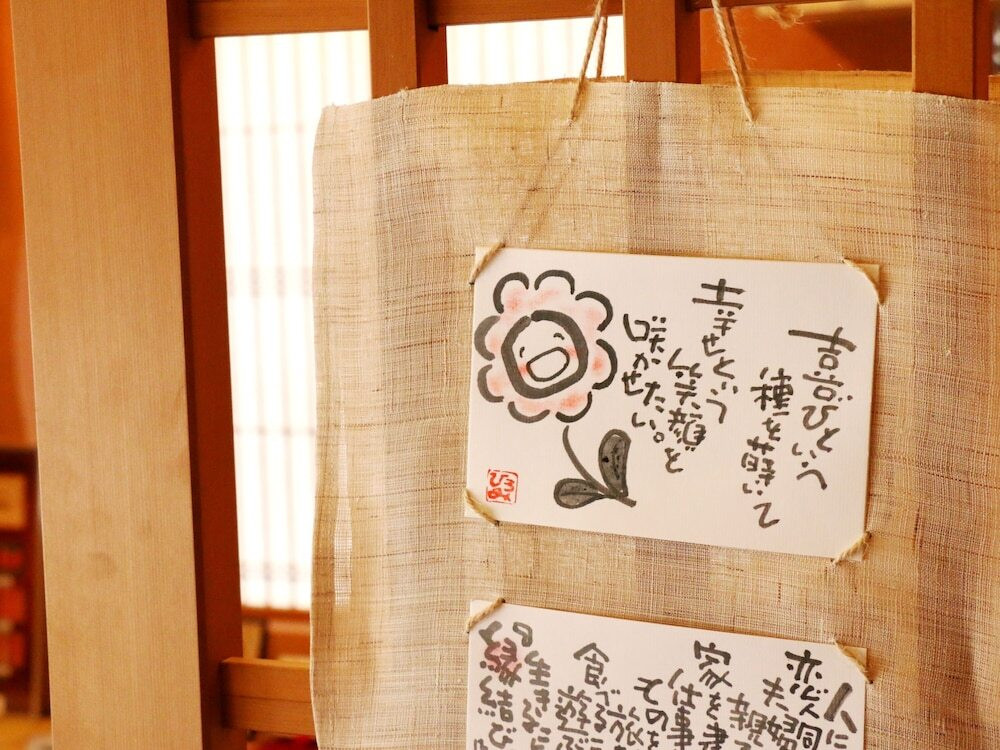 喜びという
種を蒔いて
幸せという
笑顔を
咲かせたい。
人に
恋人同
夫婦
家を
仕事
その
旅
食べる
遊ぶ
生きる
『縁結び